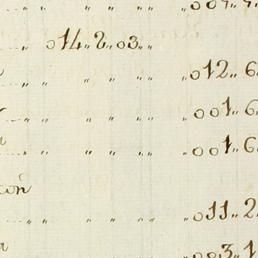 „ „ „ „ „ „ „ 007„
014„2„03„ „
„ „ „ „ „ „ 012„6
„ „ „ „ „ „ 001„6
„ „ „ „ „ „ 001„6
con
„ „ „ „ „ „ 011„2
„ „ „ „ „ „ 003„1